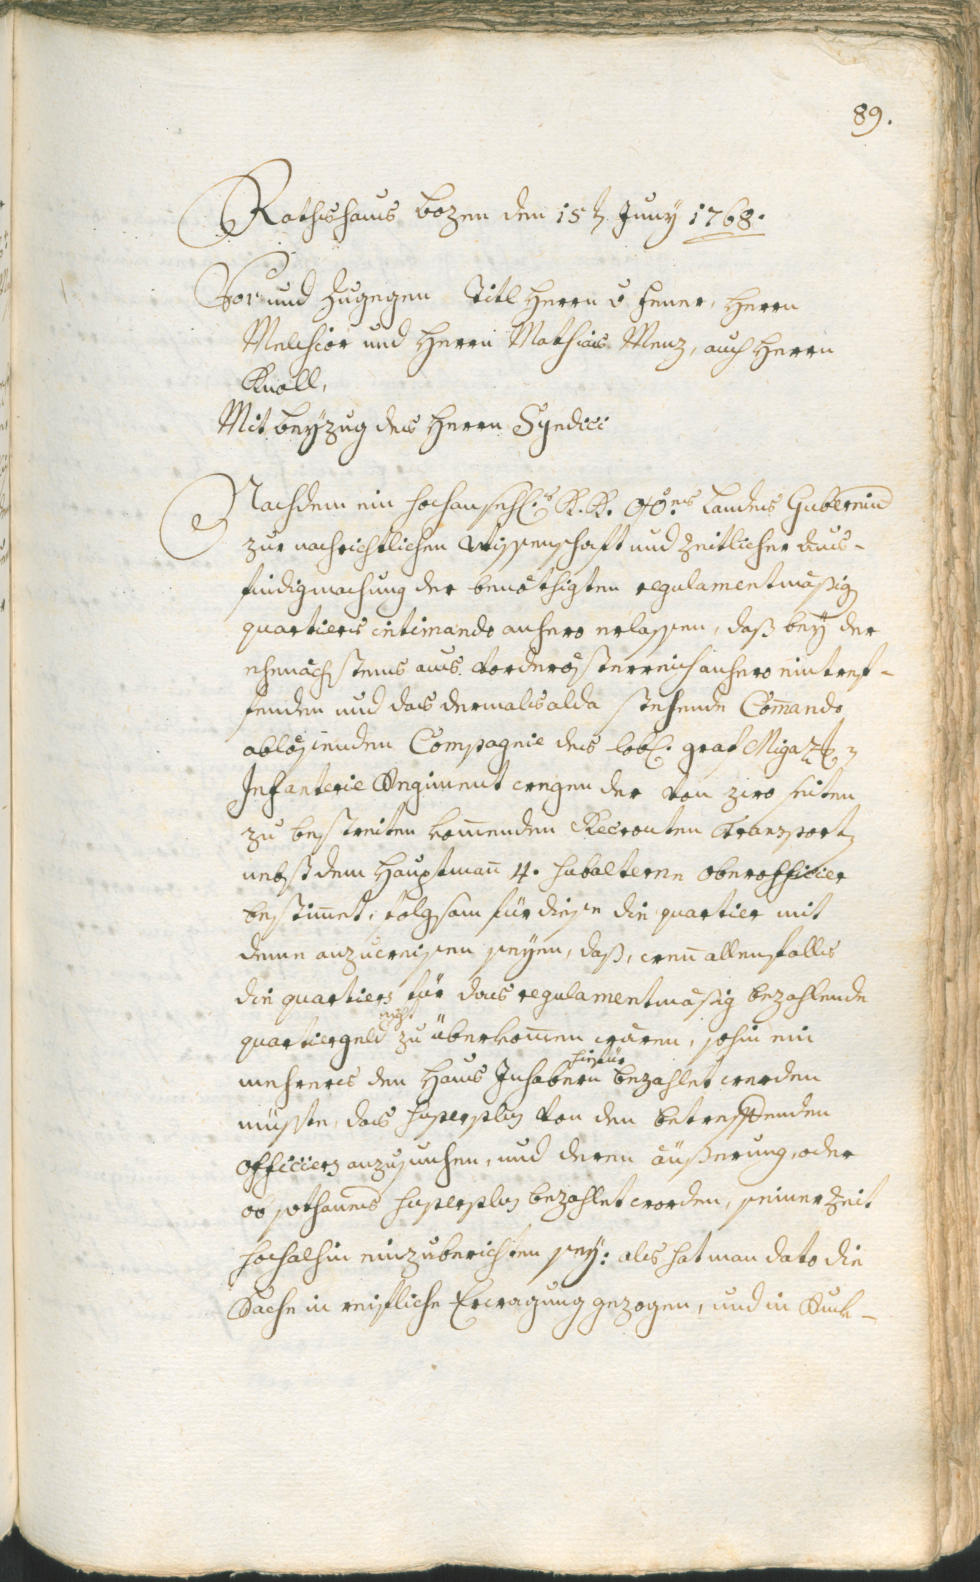 89.
Rathshaus Bozen den 15t. Juny 1768.
Vor und Zugegen Titl Herrn v Hener, Herrn
Melchior und Herrn Mathias Menz, auch Herrn
Knoll,
Mit Beyzug des Herrn Syndici
Nachdem ein hochansehl: K. K. OÖ:es Landes Gubernium
zur nachrichtlichen Wissenschaft und zeitlicher Aus-
findigmachung der benöthigten regulamentmäßig
quartiers intimando anhero erlassen, daß bey der
ehenächstens aus Vorderösterreich anhero eintref-
fenden und das dermals alda stehende Com̄ando
ablösenden Compagnie des lobl: graf Migazzi
Infanterie Regiment wegen der von hiro seiten
zu bestreiten kom̄enden Recrouten Transport
nebst dem Hauptman̄ 4. subalterne Oberofficier
bestim̄et, folgsam für diese die quartier mit
deme anzuweisen seyen, daß, wen̄ allenfalls
die quartiers für das regulamentmäßig bezahlende
quartiergeld nicht zu überkom̄en wären, sohin ein
mehrers den Haus Inhabern hinfür bezahlet werden
müsste, das superplus von den betreffenden
Officiers anzusuchen, und deren äußerung, oder
ob sothan̄es superplus bezahlet worden, seiner Zeit
hochalhin einzuberichten sey: als hat man dato die
Sache in reifliche Erwagung gezogen, und in Ruck-